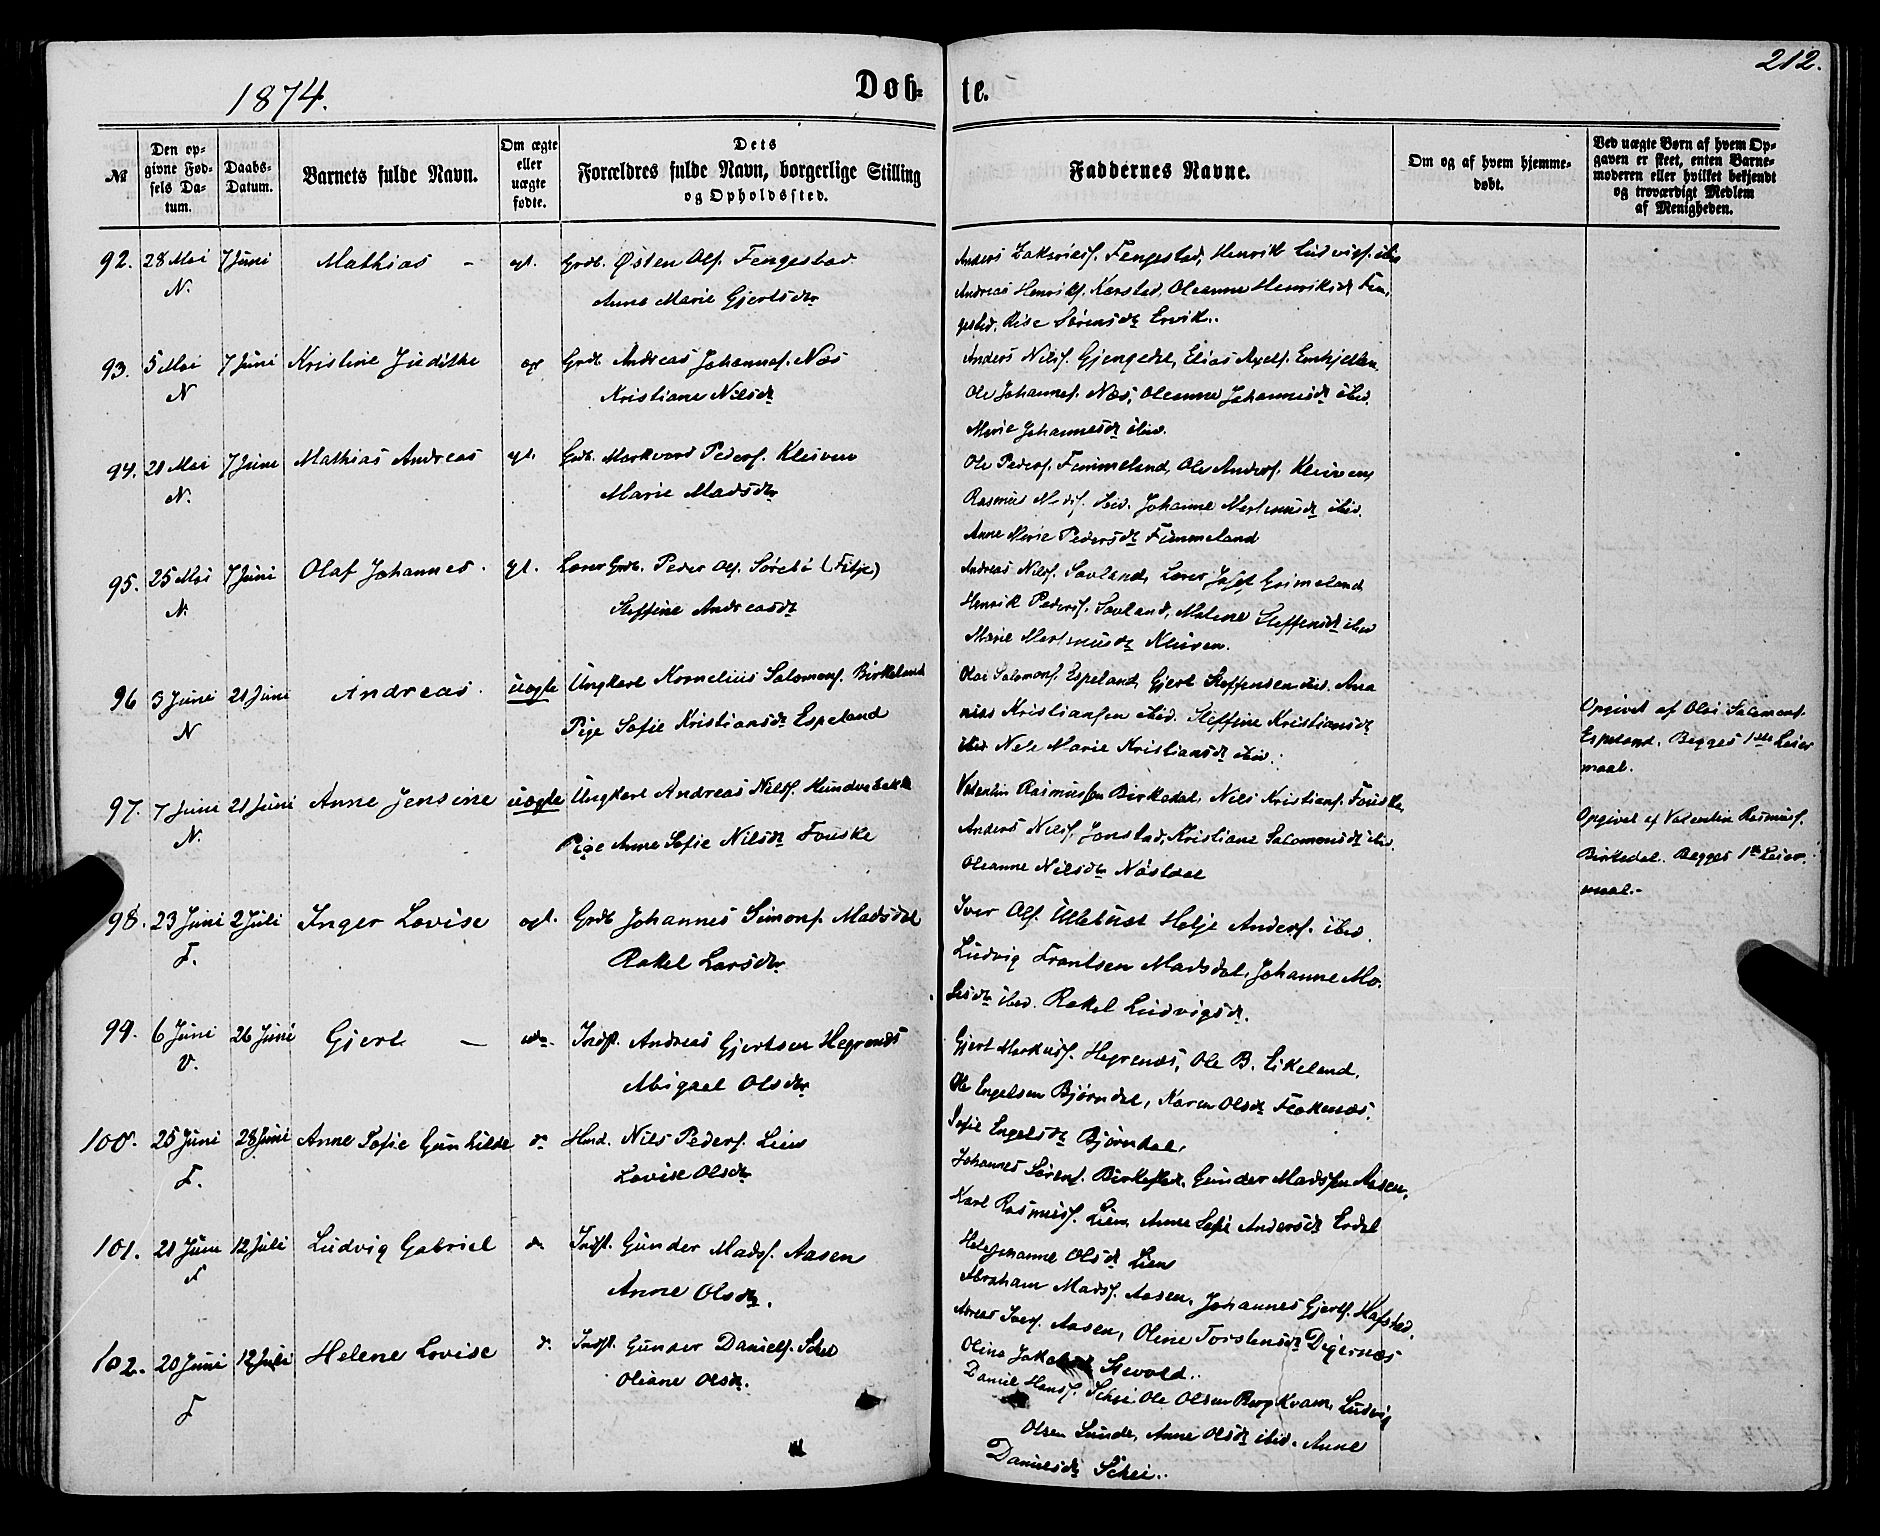 212.
1874.
Døb- te.
№
Den op-
givne Fød-
sels Da-
tum.
Daabs-
Datum.
Barnets fulde Navn.
Om ægte
eller
uægte
fødte.
Dets
Forældres fulde Navn, borgerlige Stilling
og Opholdssted.
Faddernes Navne.
Om og af hvem hjemme-
døbt.
Ved uægte Børn af hvem Op-
gaven er skeet, enten Barne-
moderen eller hvilket bekjendt
og troværdigt Medlem
af Menigheden.
92. 28 Mai 7 Juni Mathias – egt. Grdb. Østen Ols. Fengestad
N. Anne Marie Gjertsdtr
Anders Zakariass. Fengestad, Henrik Ludvigs. ibid
Andreas Henriks. Karstad, Oleanne Henriksdtr Fen-
gestad, Lise Sørensdtr Ervik.
93. 5 Mai 7 Juni Kristine Judithe eg Grdb. Andreas Johanness. Næs
N Kristiane Nilsdtr
Anders Nilss. Gjengedal, Elias Axels. Emhjellen
Ole Johanness. Næs, Oleanne Johannesdtr ibid.
Marie Johannesdtr ibid.
94. 21 Mai 7 Juni Mathias Andreas egt. Grdb. Markvard Peders. Kleiven
N. Marie Madsdtr
Ole Peders. Fimmeland, Ole Anders. Kleiven
Rasmus Mads. ibid. Johanne Martinusdtr ibid.
Anne Marie Pedersdtr Fimmeland
95. 25 Mai 7 Juni Olaf Johannes. egt. Lærer Grdb. Peder Ols. Sørebø (Fitje)
N. Steffine Andreasdtr
Andreas Nils. Savland, Lærer Josef Grimeland
Henrik Peders. Savland, Malene Steffensdtr ibid
Marie Martinusdtr Kleiven.
96 3 Juni 21 Juni Andreas. uægte Ungkarl Kornelius Salomons. Birkeland
N Pige Sofie Kristiansdtr Espeland
Olai Salomons. Espeland, Gjert Steffensen ibid. Ana
nias Kristiansen ibid. Steffine Kristiansdtr
ibid Nele Marie Kristiansdtr ibid.
Opgivet af Olai Salomons.
Espeland. Begges 1ste Leier
maal.
97. 7 Juni 21 Juni Anne Jensine uægte Ungkarl Andreas Nilss. Hundvebakke
N. Pige Anne Sofie Nilsdtr Fouske
Valentin Rasmussen Birkedal, Nils Kristians. Fouske,
Anders Nilss. Jonstad, Kristiane Salomonsdtr ibid.
Oleanne Nilsdtr Nøstdal
Opgivet af Valentin Rasmuss.
Birkedal. Begges 1ste Leier-
maal.-
98. 23 Juni 2 Juli Inger Lovise egt. Grdb Johannes Simons. Madsdal
F. Rakel Larsdtr
Iver Ols. Ulltbust Helje Anders. ibid.
Ludvig Frantsen Madsdal, Johanne Mo-
sesdtr ibid. Rakel Ludvigsdtr.
99. 6 Juni 26 Juni Gjert – Indst. Andreas Gjertsen Hegrenæs
V. Abigael Olsdtr
Gjert Markuss. Hegrenæs, Ole B. Eikeland.
Ole Engelsen Bjørndal, Karen Olsdtr Flokenæs.
Sofie Engelsdtr Bjørndal.
100. 25 Juni 28 Juni Anne Sofie Gunhilde do Hmd. Nils Peders. Lien
F. Lovise Olsdtr
Johannes Sørens. Birkestad, Gunder Madssen Aasen,
Karl Rasmuss. Lien, Anne Sofie Andersdtr Erdal
Helejohanne Olsdtr Lien
101. 21 Juni 12 Juli Ludvig Gabriel do Indst. Gunder Madss. Aasen
F Anne Olsdtr.
Abraham Madss. Aasen, Johannes Gjerts. Hafstad.
Ivers. Aasen, Oline Torstensdtr Digernæs
Oline Stevold.
102. 20 Juni 12 Juli Helene Lovise d. Indst. Gunder Daniels. Schei
F Oliane Olsdtr.
Daniel Hanss. Schei Ole Olsen Berg Kvam, Ludvig
Olsen Sunde, Anne Olsdtr ibid. Anne
Danielsdtr Schei.